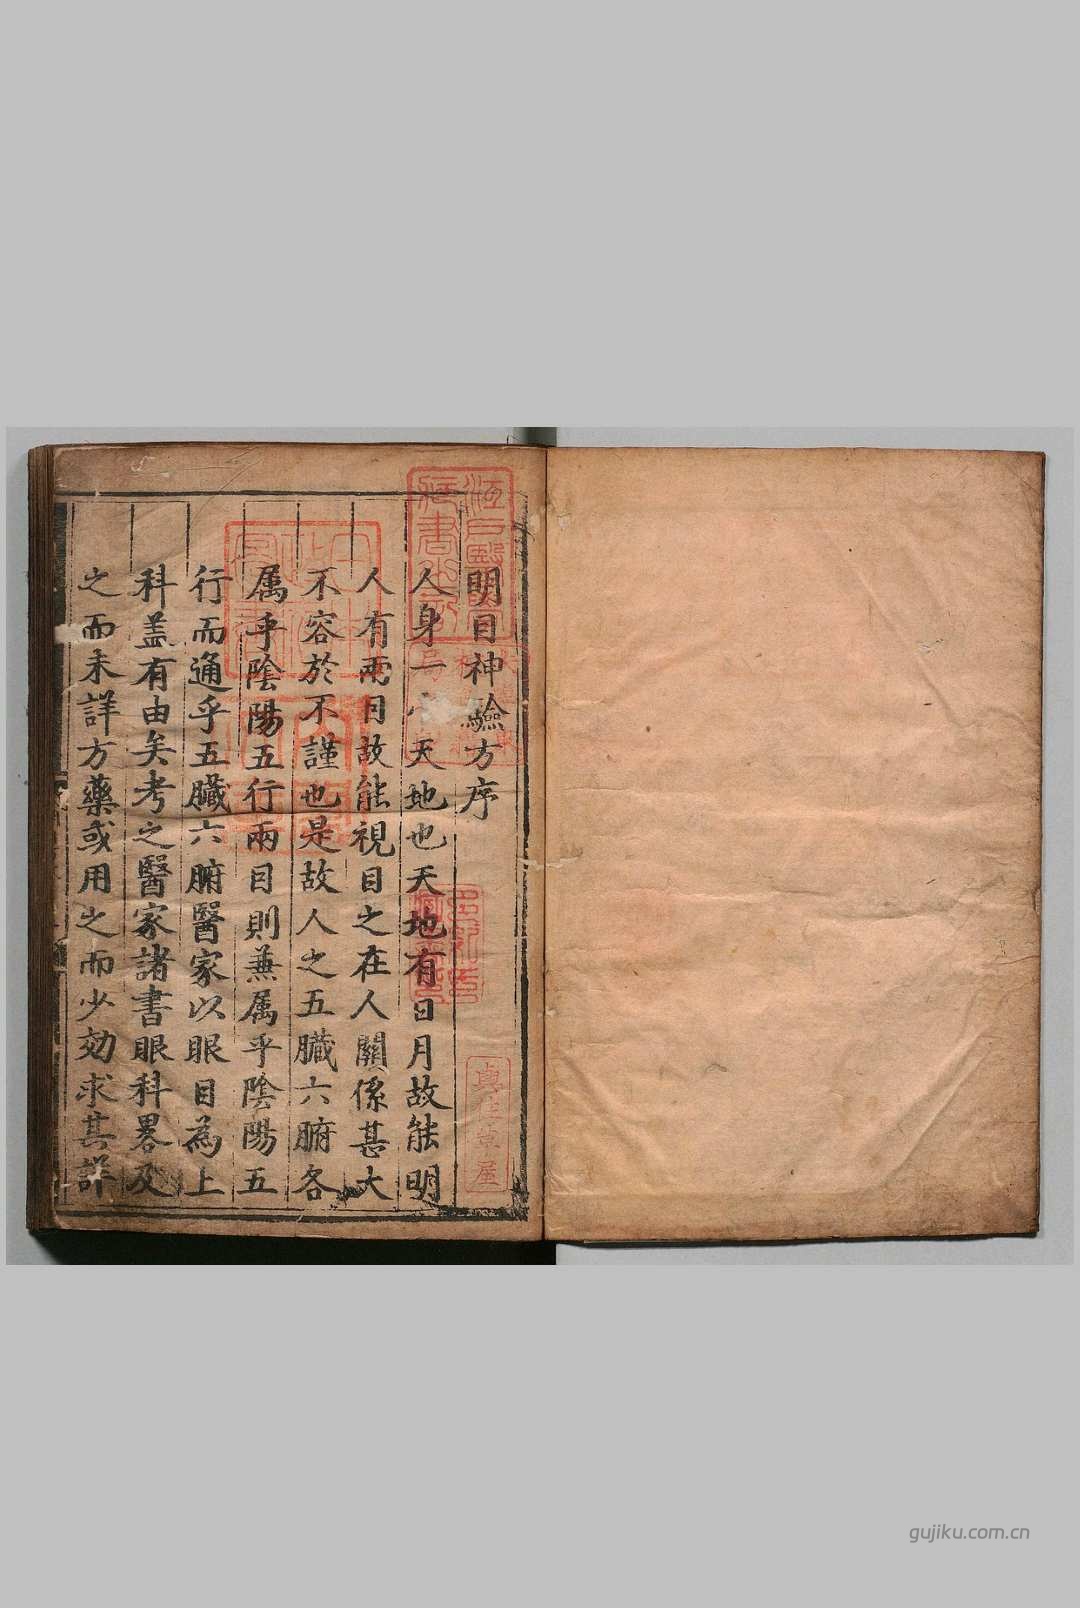 明目神驗方序
人身一小天地也天地有日月故能明
人有兩目故能視目之在人關係甚大
不容於不謹也是故人之五臟六腑各
属乎陰陽五行兩目則兼属乎陰陽五
行而通乎五臟六腑醫家以眼目為上
科盖有由矣考之醫家諸書眼科畧及
之而未詳方藥或用之而少効求其詳
江戶醫學
藏書之記
gujiku.com.cn